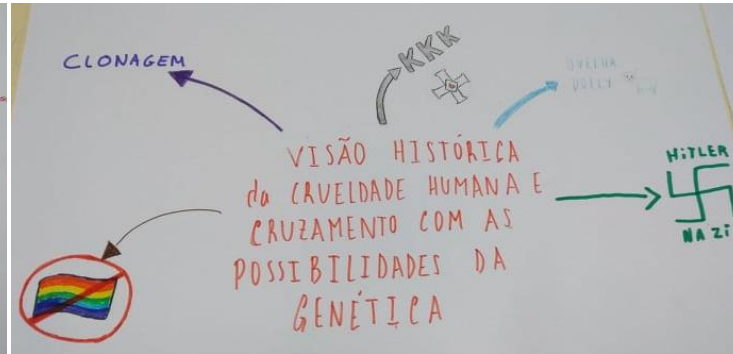 CLONAGEM
KKK
OVELHA
DOLLY
VISÃO HISTÓRICA
da CRUELDADE HUMANA E
CRUZAMENTO COM AS
POSSIBILIDADES DA
GENÉTICA
HiTLER
NAZi